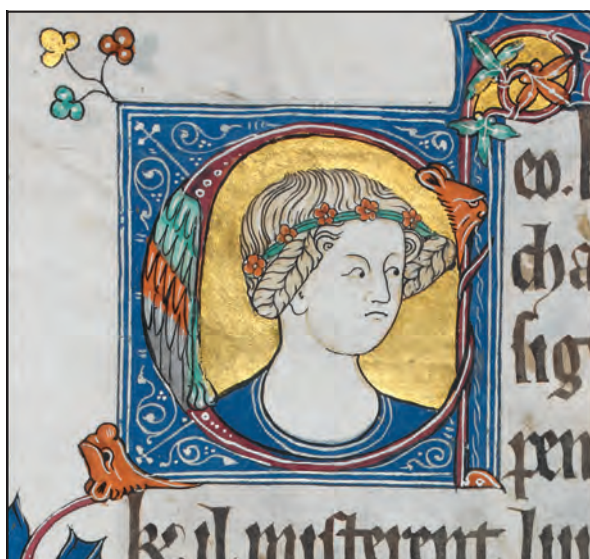 eo.
cha
sig
pen
ke il misterent